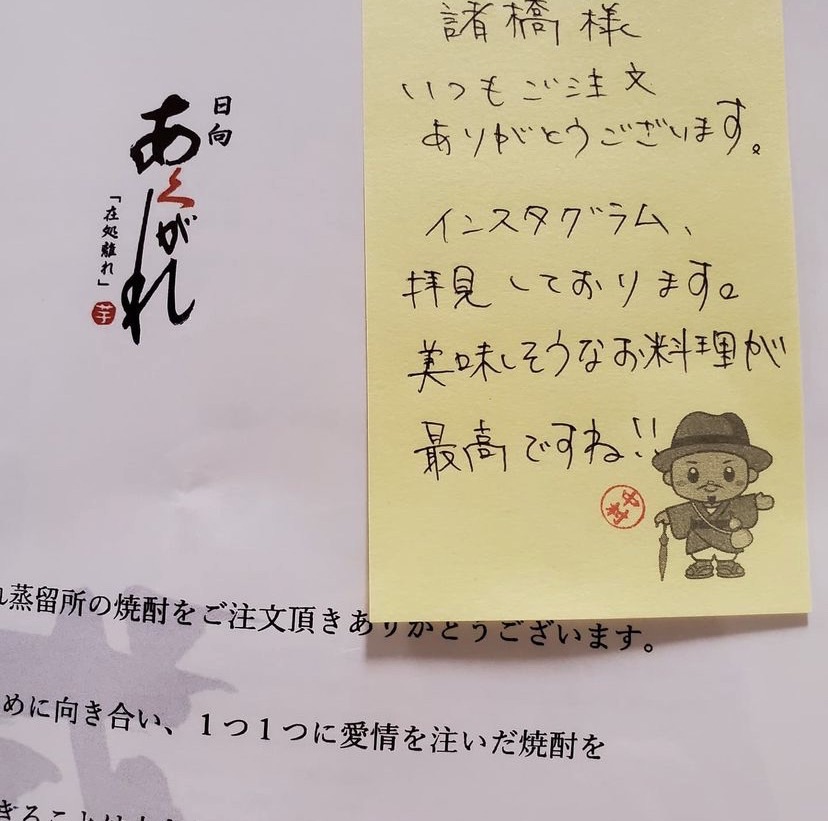 日向
あくがれ
「在処離れ」
芋
諸橋様
いつもご注文
ありがとうございます。
インスタグラム、
拝見しております。
美味しそうなお料理が
最高ですね!!
中村
れ蒸留所の焼酎をご注文頂きありがとうございます。
めに向き合い、1つ1つに愛情を注いだ焼酎を